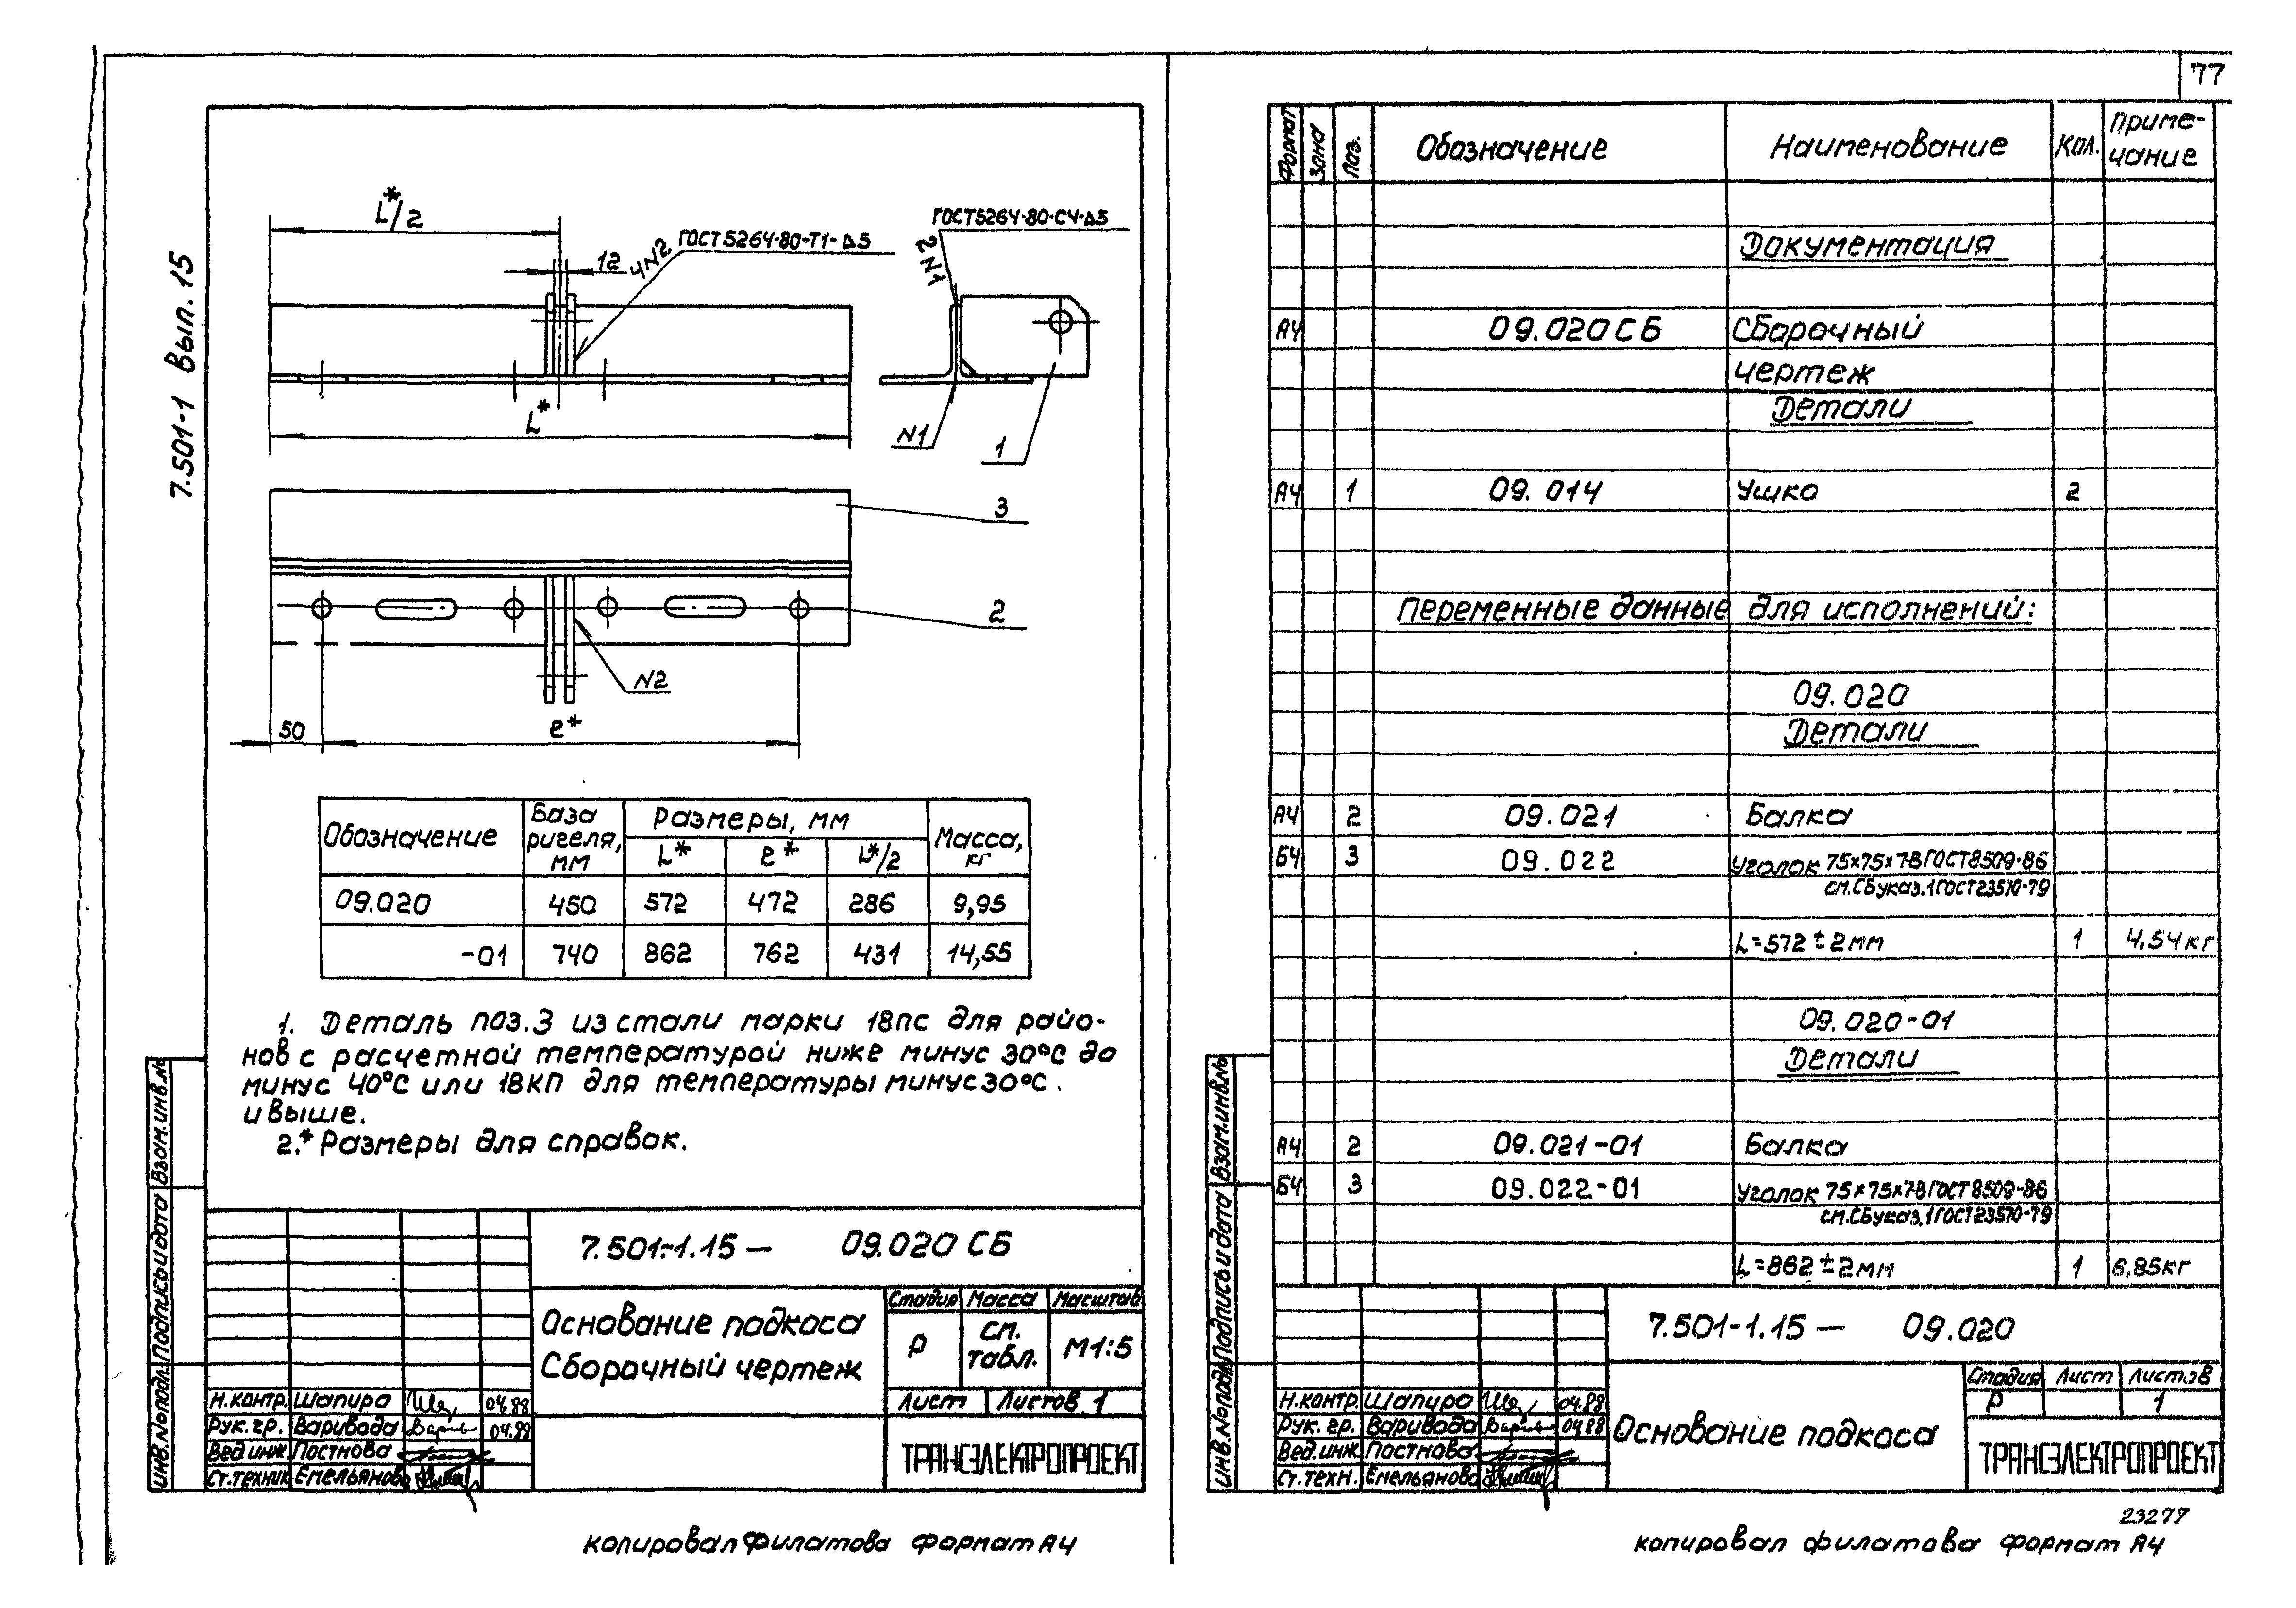 77
7.501-1 Вып. 15
L*/2
12
4 N2
ГОСТ 5264-80-Т1-Δ5
ГОСТ 5264-80-С4-Δ5
2 N1
L*
N1
1
3
2
N2
50
e*
Обозначение
База ригеля, мм
Размеры, мм
Масса, кг
L*
e*
L*/2
09.020 450 572 472 286 9,95
-01 740 862 762 431 14,55
1. Деталь поз.3 из стали марки 18пс для райо-
нов с расчетной температурой ниже минус 30°С до
минус 40°С или 18кп для температуры минус 30°С.
и выше.
2.* Размеры для справок.
7.501-1.15 — 09.020 СБ
Основание подкоса
Сборочный чертеж
Стадия Масса Масштаб
Р см. табл. М1:5
Лист Листов 1
ТРАНСЭЛЕКТРОПРОЕКТ
Н.контр. Шапиро 04.88
Рук. гр. Варивода 04.88
Вед.инж Постнова
Ст.техник Емельянова
Взам.инв.№
Подпись и дата
Инв.№подл.
Копировал Филатова Формат А4
Формат
Зона
Поз.
Обозначение
Наименование
Кол.
Приме-
чание
Документация
А4 09.020 СБ Сборочный
чертеж
Детали
А4 1 09.014 Ушко 2
Переменные данные для исполнений:
09.020
Детали
А4 2 09.021 Балка
БЧ 3 09.022 Уголок 75×75×7-В ГОСТ 8509-86
см.СБ указ.1 ГОСТ 23570-79
L=572±2мм 1 4,54кг
09.020-01
Детали
А4 2 09.021-01 Балка
БЧ 3 09.022-01 Уголок 75×75×7-В ГОСТ 8509-86
см.СБ указ.1 ГОСТ 23570-79
L=862±2мм 1 6,85кг
7.501-1.15 — 09.020
Основание подкоса
Стадия Лист Листов
Р 1
ТРАНСЭЛЕКТРОПРОЕКТ
Н.контр. Шапиро 04.88
Рук. гр. Варивода 04.88
Вед.инж. Постнова
Ст.техн. Емельянова
Взам.инв.№
Подпись и дата
Инв.№подл.
23277
Копировал Филатова Формат А4